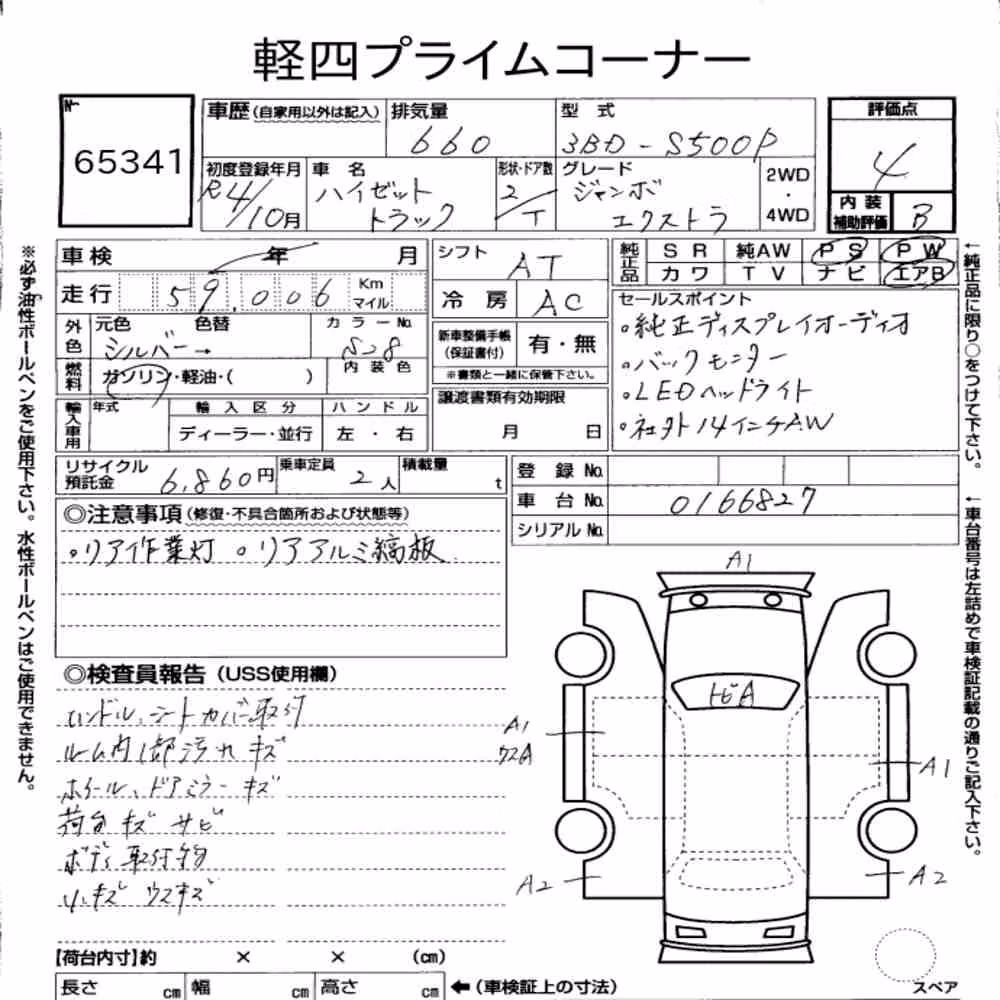 軽四プライムコーナー
No.
65341
車歴(自家用以外は記入)
排気量
660
型 式
3BD-S500P
評価点
4
初度登録年月
R4/10月
車 名
ハイゼット
トラック
形状・ドア数
2/T
グレード
ジャンボ
エクストラ
2WD
・
4WD
内 装
補助評価
B
車検
年 月
走行
59,006
Km
マイル
外色
元色 色替
シルバー→
カラーNo.
S28
燃料
ガソリン・軽油・( )
内 装 色
輸入車用
年式
輸 入 区 分
ディーラー・並行
ハ ン ド ル
左 ・ 右
シフト
AT
冷 房
AC
新車整備手帳
(保証書付)
有・無
※書類と一緒に保管下さい。
譲渡書類有効期限
月 日
純正品
S R 純AW P S P W
カ ワ T V ナ ビ エアB
セールスポイント
。純正ディスプレイオーディオ
。バックモニター
。LEDヘッドライト
。社外14インチAW
リサイクル
預託金
6,860円
乗車定員
2人
積載量
t
登 録 No.
車 台 No.
0166827
シリアルNo.
◎注意事項(修復・不具合箇所および状態等)
。リア作業灯 。リアアルミ縞板
◎検査員報告(USS使用欄)
ハンドル、シートカバー取付
ルーム内1部汚れ キズ
ホイール、ドアミラーキズ
荷台キズ サビ
ボディ取付物
小キズ ウスキズ
A1
トビA
A1
ウスA
A1
A2
A2
スペア
【荷台内寸】約 × × (cm)
長さ cm 幅 cm 高さ cm ←(車検証上の寸法)
※必ず油性ボールペンをご使用下さい。水性ボールペンはご使用できません。
←純正品に限り○をつけて下さい。
←車台番号は左詰めで車検証記載の通りご記入下さい。